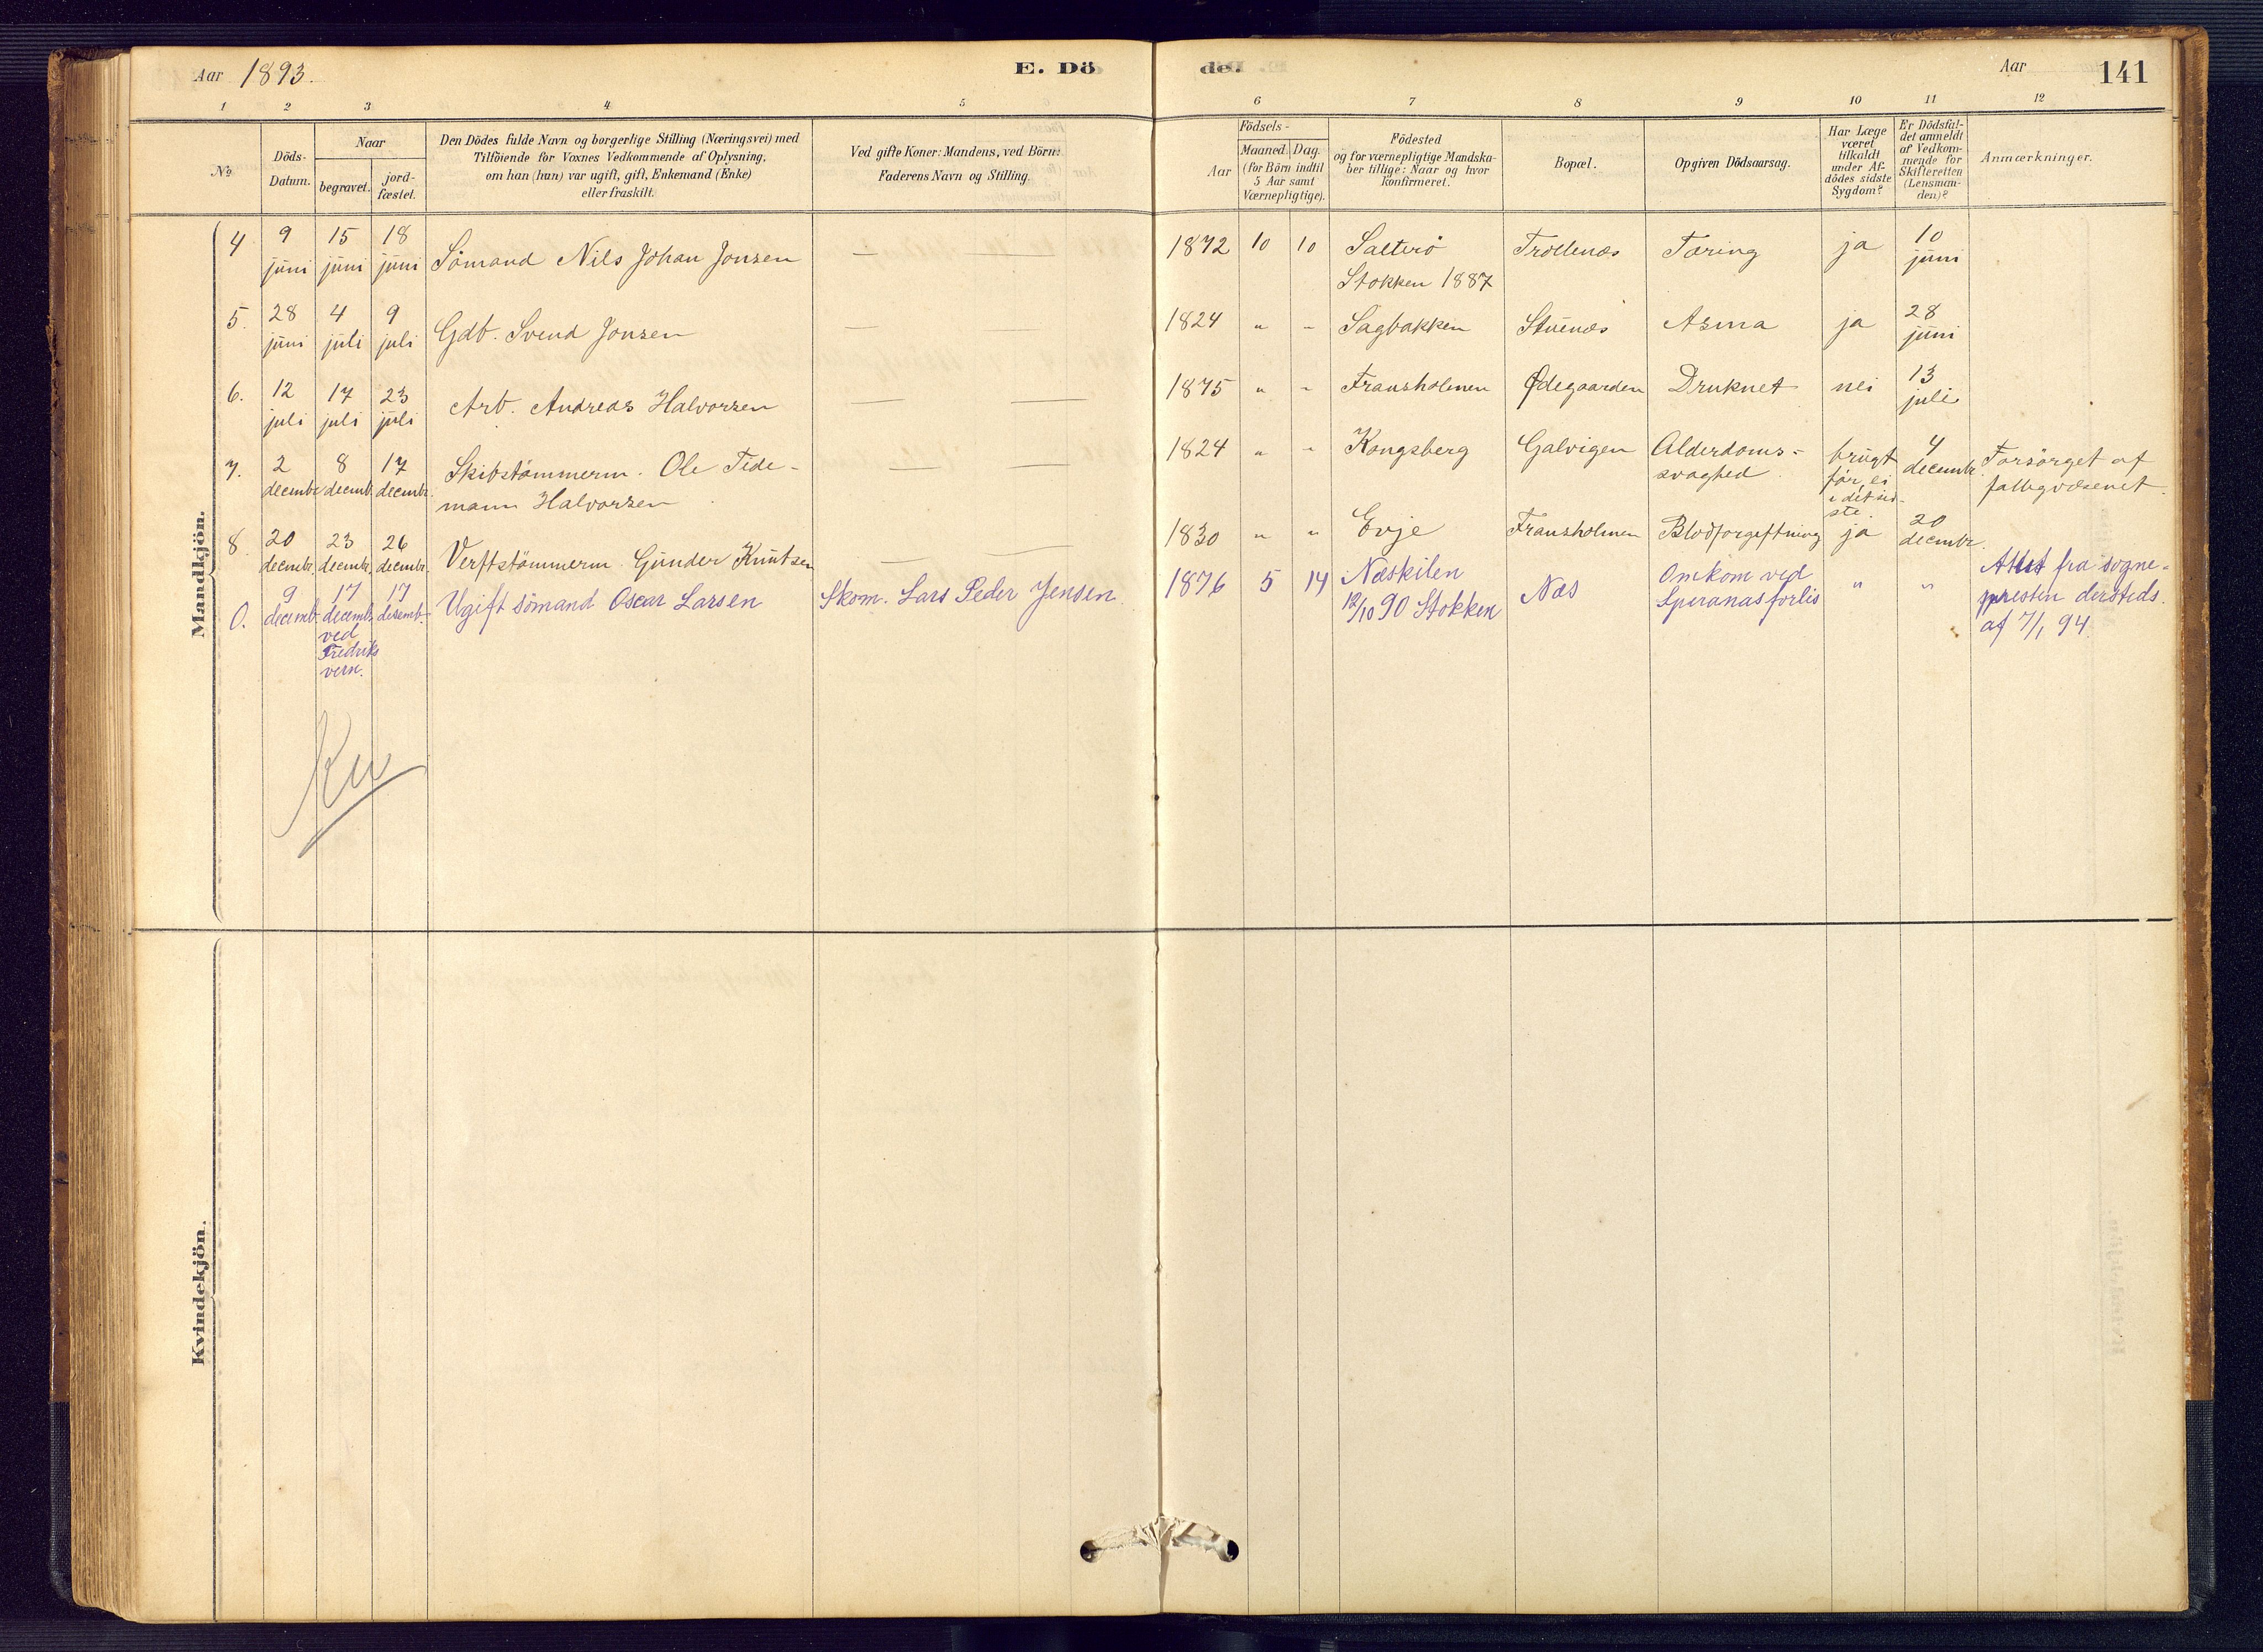 Aar 1893.
E. Dö
de.
Aar
141
1 2 3 4 5 6 7 8 9 10 11 12
No
Döds-
Datum.
Naar
begravet.
jord-
fæstet.
Den Dödes fulde Navn og borgerlige Stilling (Næringsvei) med
Tilföiende for Voxnes Vedkommende af Oplysning,
om han (hun) var ugift, gift, Enkemand (Enke)
eller fraskilt.
Ved gifte Koner: Mandens, ved Börn:
Faderens Navn og Stilling.
Födsels-
Aar
Maaned. Dag.
(for Börn indtil
5 Aar samt
Værnepligtige).
Födested
og for værnepligtige Mandska-
ber tillige: Naar og hvor
konfirmeret.
Bopæl.
Opgiven Dödsaarsag.
Har Læge
været
tilkaldt
under Af-
dödes sidste
Sygdom?
Er Dödsfal-
det anmeldt
af Vedkom-
mende for
Skifteretten
(Lensman-
den)?
Anmærkninger.
Mandkjön.
4 9 juni 15 juni 18 juni Sömand Nils Johan Jonsen — — 1872 10 10 Salterö Trollenæs Tæring ja 10 juni
Stokken 1887
5. 28 juni 4 juli 9 juli Gdb. Svend Jonsen — — 1824 " " Sagbakken Stuenæs Asma ja 28 juni
6. 12 juli 17 juli 23 juli Arb. Andreas Halvorsen — — 1875 " " Fransholmen Ødegaarden Druknet nei 13 juli
7. 2 decembr 8 decemb. 17 decembr. Skibstömmerm. Ole Tide- — — 1824 " " Kongsberg Galvigen Alderdoms- brugt 4 decembr. Forsörget af
mann Halvorsen svaghed för, ei fattigvæsenet.
i det sid-
ste.
8. 20 decembr. 23 decembr. 26 decembr. Verftstömmerm. Gunder Knutsen — — 1830 " " Evje Fransholmen Blodforgiftning ja 20 decembr.
0. 9 decemb. 17 decemb. 17 desemb. Ugift sömand Oscar Larsen Skom. Lars Peder Jensen 1876 5 14 Næskilen Næs Omkom ved " " Attest fra sogne-
ved 12/10 90 Stokken Speranas forlis presten dersteds.
Fredriks af 7/1 94.
vern.
Kvindekjön.